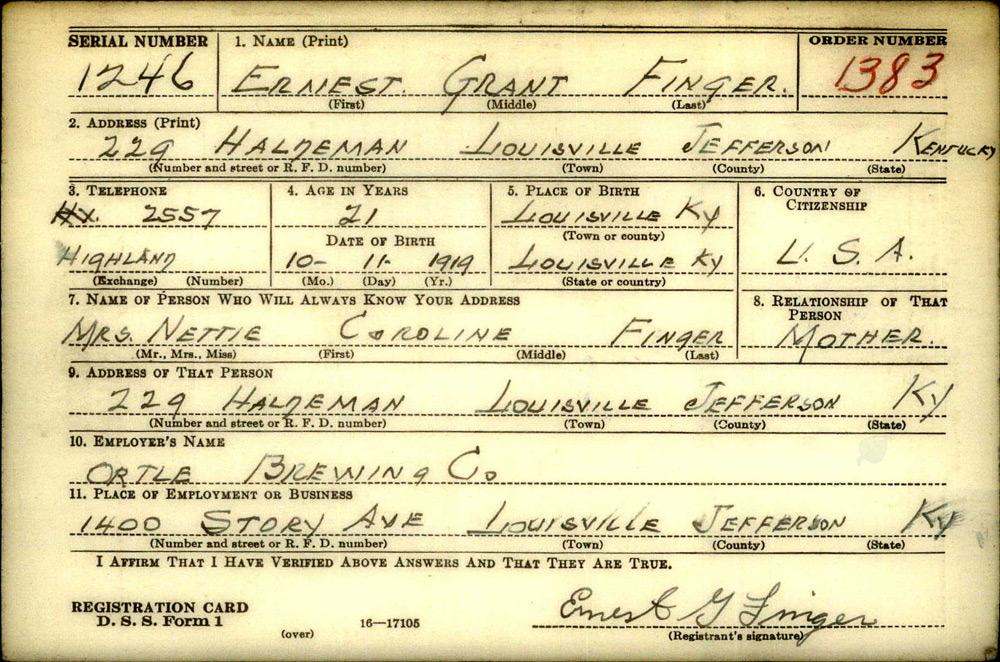 SERIAL NUMBER 1. NAME (Print) ORDER NUMBER
1246 ERNEST. GRANT FINGER. 1383
(First) (Middle) (Last)
2. ADDRESS (Print)
229 HALDEMAN LOUISVILLE JEFFERSON KENTUCKY
(Number and street or R. F. D. number) (Town) (County) (State)
3. TELEPHONE 4. AGE IN YEARS 5. PLACE OF BIRTH 6. COUNTRY OF CITIZENSHIP
2557 21 LOUISVILLE KY
DATE OF BIRTH (Town or county)
HIGHLAND 10- 11- 1919 LOUISVILLE KY U. S. A.
(Exchange) (Number) (Mo.) (Day) (Yr.) (State or country)
7. NAME OF PERSON WHO WILL ALWAYS KNOW YOUR ADDRESS 8. RELATIONSHIP OF THAT PERSON
MRS. NETTIE COROLINE FINGER MOTHER.
(Mr., Mrs., Miss) (First) (Middle) (Last)
9. ADDRESS OF THAT PERSON
229 HALDEMAN LOUISVILLE JEFFERSON KY
(Number and street or R. F. D. number) (Town) (County) (State)
10. EMPLOYER'S NAME
ORTLE BREWING CO
11. PLACE OF EMPLOYMENT OR BUSINESS
1400 STORY AVE LOUISVILLE JEFFERSON KY
(Number and street or R. F. D. number) (Town) (County) (State)
I AFFIRM THAT I HAVE VERIFIED ABOVE ANSWERS AND THAT THEY ARE TRUE.
REGISTRATION CARD Ernest G Finger
D. S. S. Form 1 (over) 16—17105 (Registrant's signature)